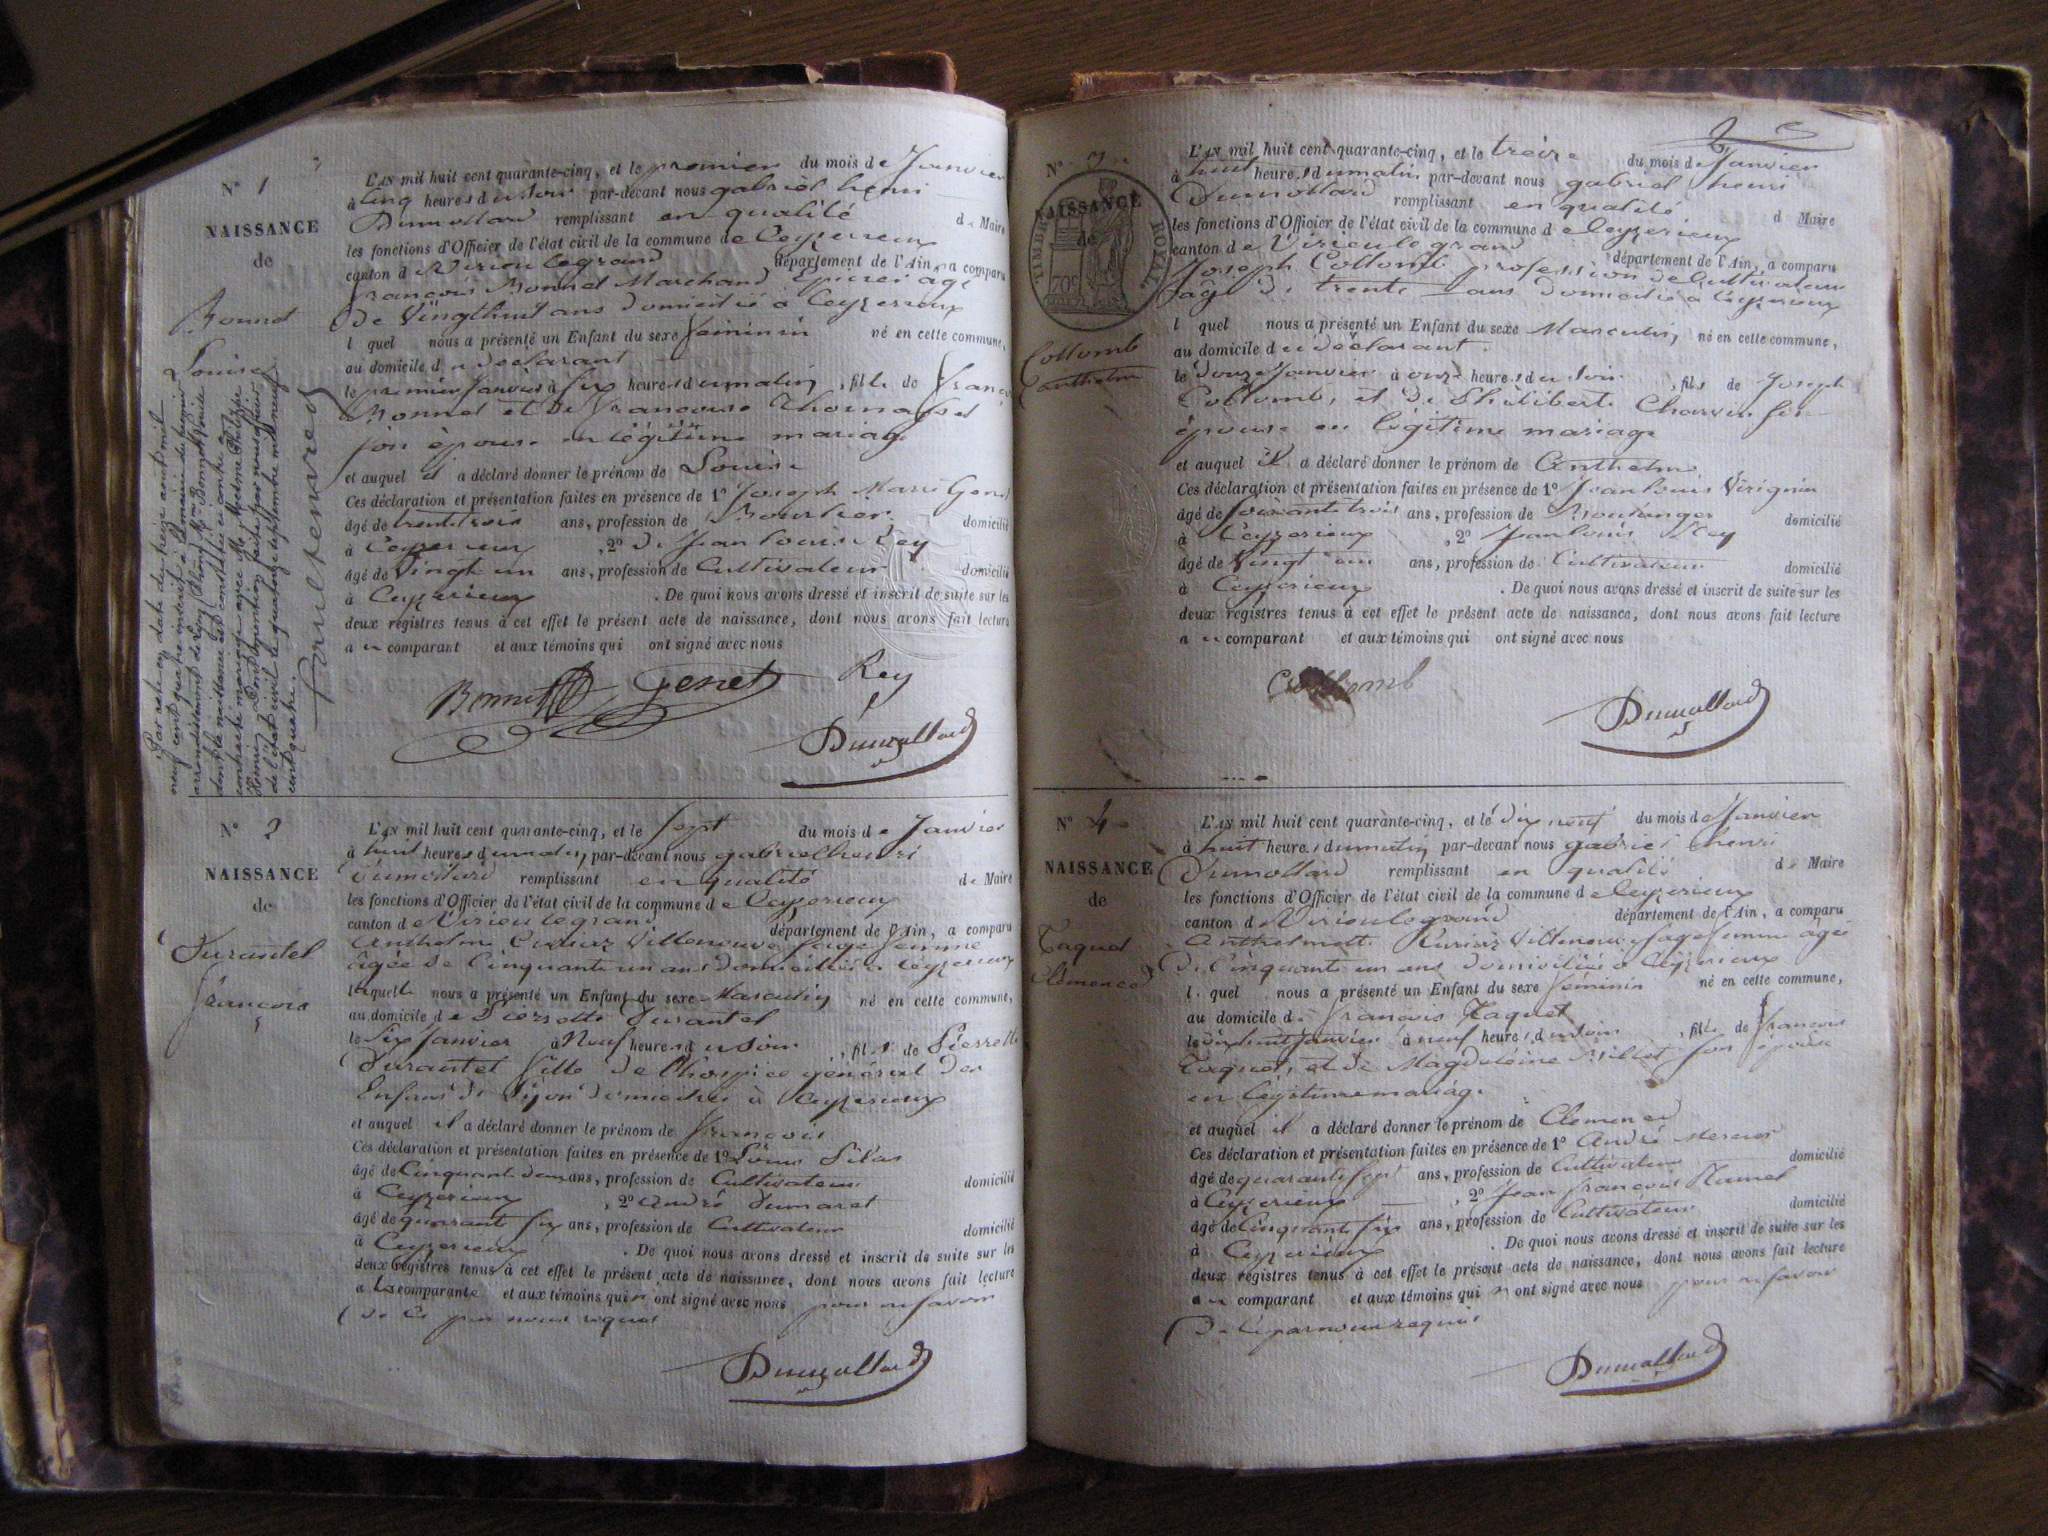 N° 1
NAISSANCE
de
Bonnet
Louise
L'AN mil huit cent quarante-cinq, et le premier du mois de Janvier
à Cinq heures du soir par-devant nous gabriel henri
Dumollard remplissant en qualité de Maire
les fonctions d'Officier de l'état civil de la commune de Ceyzerieux
canton de Virieu legrand département de l'Ain, a comparu
françois Bonnet Marchand Epicier agé
de Vingt huit ans domicilié à Ceyzerieux
lequel nous a présenté un Enfant du sexe feminin né en cette commune,
au domicile du declarant
le premier Janvier à Six heures du matin, fille de franço
Bonnet et de francoise Thomasset
son épouse en légitime mariage
et auquel il a déclaré donner le prénom de Louise
Ces déclaration et présentation faites en présence de 1° Joseph Marie Genet
âgé de trente trois ans, profession de Bourlier domicilié
à Ceyzerieux , 2° de Jean Louis Rey
âgé de Vingt un ans, profession de Cultivateur domicilié
à Ceyzerieux . De quoi nous avons dressé et inscrit de suite sur les
deux registres tenus à cet effet le présent acte de naissance, dont nous avons fait lecture
au comparant et aux témoins qui ont signé avec nous
Bonnet Genet Rey
Dumollard
Par acte en date du treize août mil
neuf cent quatre inscrit à la mairie du premier
arrondissement de Lyon (Rhône) Mme Bonnet Louise
dont la naissance est constatée ci-contre a
contracté mariage avec Mr
de l'état civil le quatorze septembre mil neuf
cent quatre.
N° 2
NAISSANCE
de
Durantet
François
L'AN mil huit cent quarante-cinq, et le Sept du mois de Janvier
à huit heures du matin, par-devant nous gabriel henri
Dumollard remplissant en qualité de Maire
les fonctions d'Officier de l'état civil de la commune de Ceyzerieux
canton de Virieu legrand département de l'Ain, a comparu
Anthelme Villeneuve Sage femme
âgée de Cinquante un ans domiciliée a Ceyzerieux
laquelle nous a présenté un Enfant du sexe Masculin né en cette commune,
au domicile de Pierrette Durantet
le Six Janvier à Neuf heures du Soir, fils de Pierrette
Durantet fille de l'hospice général des
Enfans de Dijon domiciliée à Ceyzerieux
et auquel il a déclaré donner le prénom de François
Ces déclaration et présentation faites en présence de 1° Louis
âgé de Cinquante deux ans, profession de Cultivateur domicilié
à Ceyzerieux , 2° André Dumaret
âgé de quarante six ans, profession de Cultivateur domicilié
à Ceyzerieux . De quoi nous avons dressé et inscrit de suite sur les
deux registres tenus à cet effet le présent acte de naissance, dont nous avons fait lecture
a la comparante et aux témoins qui n'ont signé avec nous pour ne savoir
de ce par nous requis
Dumollard
2
N° 3
NAISSANCE
de
TIMBRE ROYAL
70c
Collomb
anthelme
L'AN mil huit cent quarante-cinq, et le treize du mois de Janvier
à huit heures du matin par-devant nous gabriel henri
Dumollard remplissant en qualité de Maire
les fonctions d'Officier de l'état civil de la commune de Ceyzerieux
canton de Virieu le grand département de l'Ain, a comparu
Joseph Collomb profession de Cultivateur
âgé de trente ans domicilié a Ceyzerieux
lequel nous a présenté un Enfant du sexe Masculin, né en cette commune,
au domicile du déclarant.
le douze Janvier à onze heures du soir, fils de Joseph
Collomb, et de Philiberte Charvin son
épouse en légitime mariage
et auquel il a déclaré donner le prénom de Anthelme
Ces déclaration et présentation faites en présence de 1° Jean Louis Virignin
âgé de soixante trois ans, profession de Boulanger domicilié
à Ceyzerieux , 2° Jean Louis Rey
âgé de Vingt un ans, profession de Cultivateur domicilié
à Ceyzerieux . De quoi nous avons dressé et inscrit de suite sur les
deux registres tenus à cet effet le présent acte de naissance, dont nous avons fait lecture
au comparant et aux témoins qui ont signé avec nous
Collomb
Dumollard
N° 4
NAISSANCE
de
Taquet
Clémence
L'AN mil huit cent quarante-cinq, et le dix neuf du mois de Janvier
à huit heures du matin, par-devant nous gabriel henri
Dumollard remplissant en qualité de Maire
les fonctions d'Officier de l'état civil de la commune de Ceyzerieux
canton de Virieu legrand département de l'Ain, a comparu
Anthelmette Villeneuve Sage femme agée
de Cinquante un ans domiciliée a Ceyzerieux
l quel nous a présenté un Enfant du sexe féminin né en cette commune,
au domicile de françois Taquet
le dix huit Janvier à neuf heures du soir, fille de françois
Taquet, et de Magdeleine Millet son épouse
en légitime mariage.
et auquel il a déclaré donner le prénom de Clemence
Ces déclaration et présentation faites en présence de 1° André Mercier
âgé de quarante sept ans, profession de Cultivateur domicilié
à Ceyzerieux , 2° Jean françois
âgé de Cinquante six ans, profession de Cultivateur domicilié
à Ceyzerieux . De quoi nous avons dressé et inscrit de suite sur les
deux registres tenus à cet effet le présent acte de naissance, dont nous avons fait lecture
au comparant et aux témoins qui n'ont signé avec nous pour ne savoir
de ce par nous requis
Dumollard